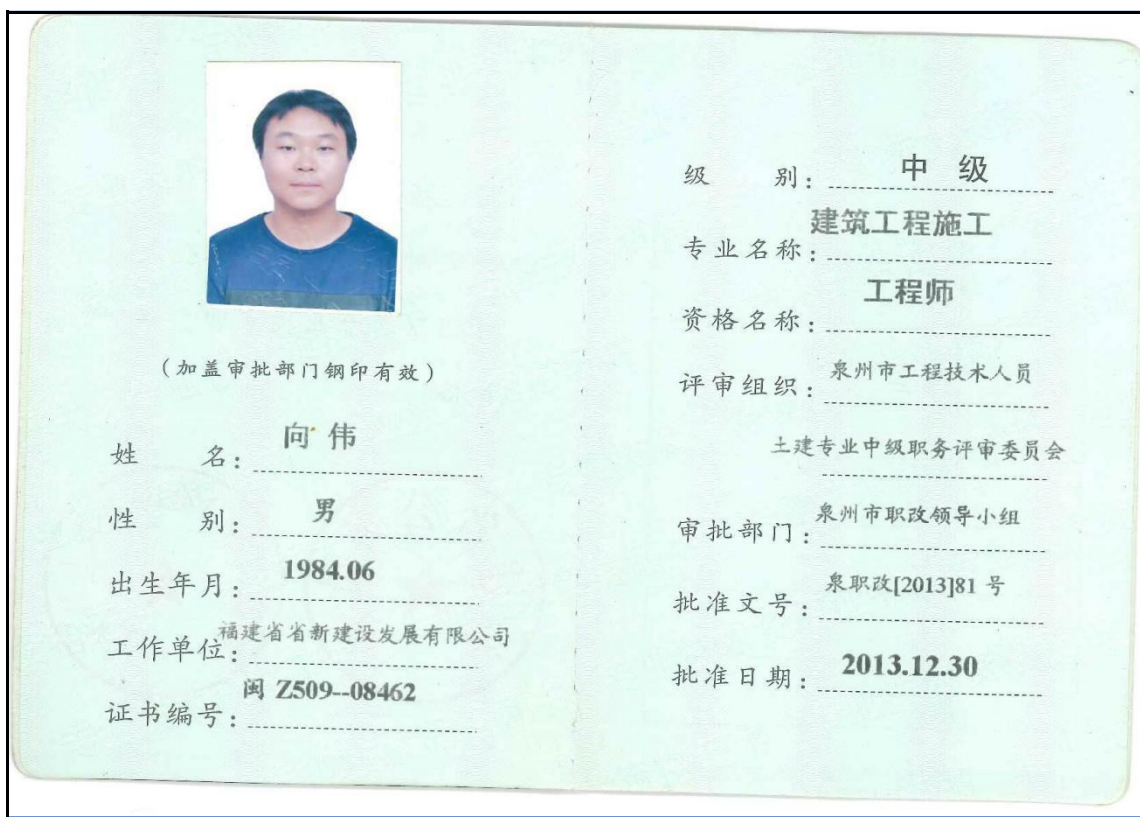 (加盖审批部门钢印有效)
姓 名：向 伟
性 别：男
出生年月：1984.06
工作单位：福建省省新建设发展有限公司
证书编号：闽 Z509--08462
级 别：中 级
专业名称：建筑工程施工
资格名称：工程师
评审组织：泉州市工程技术人员
土建专业中级职务评审委员会
审批部门：泉州市职改领导小组
批准文号：泉职改[2013]81 号
批准日期：2013.12.30